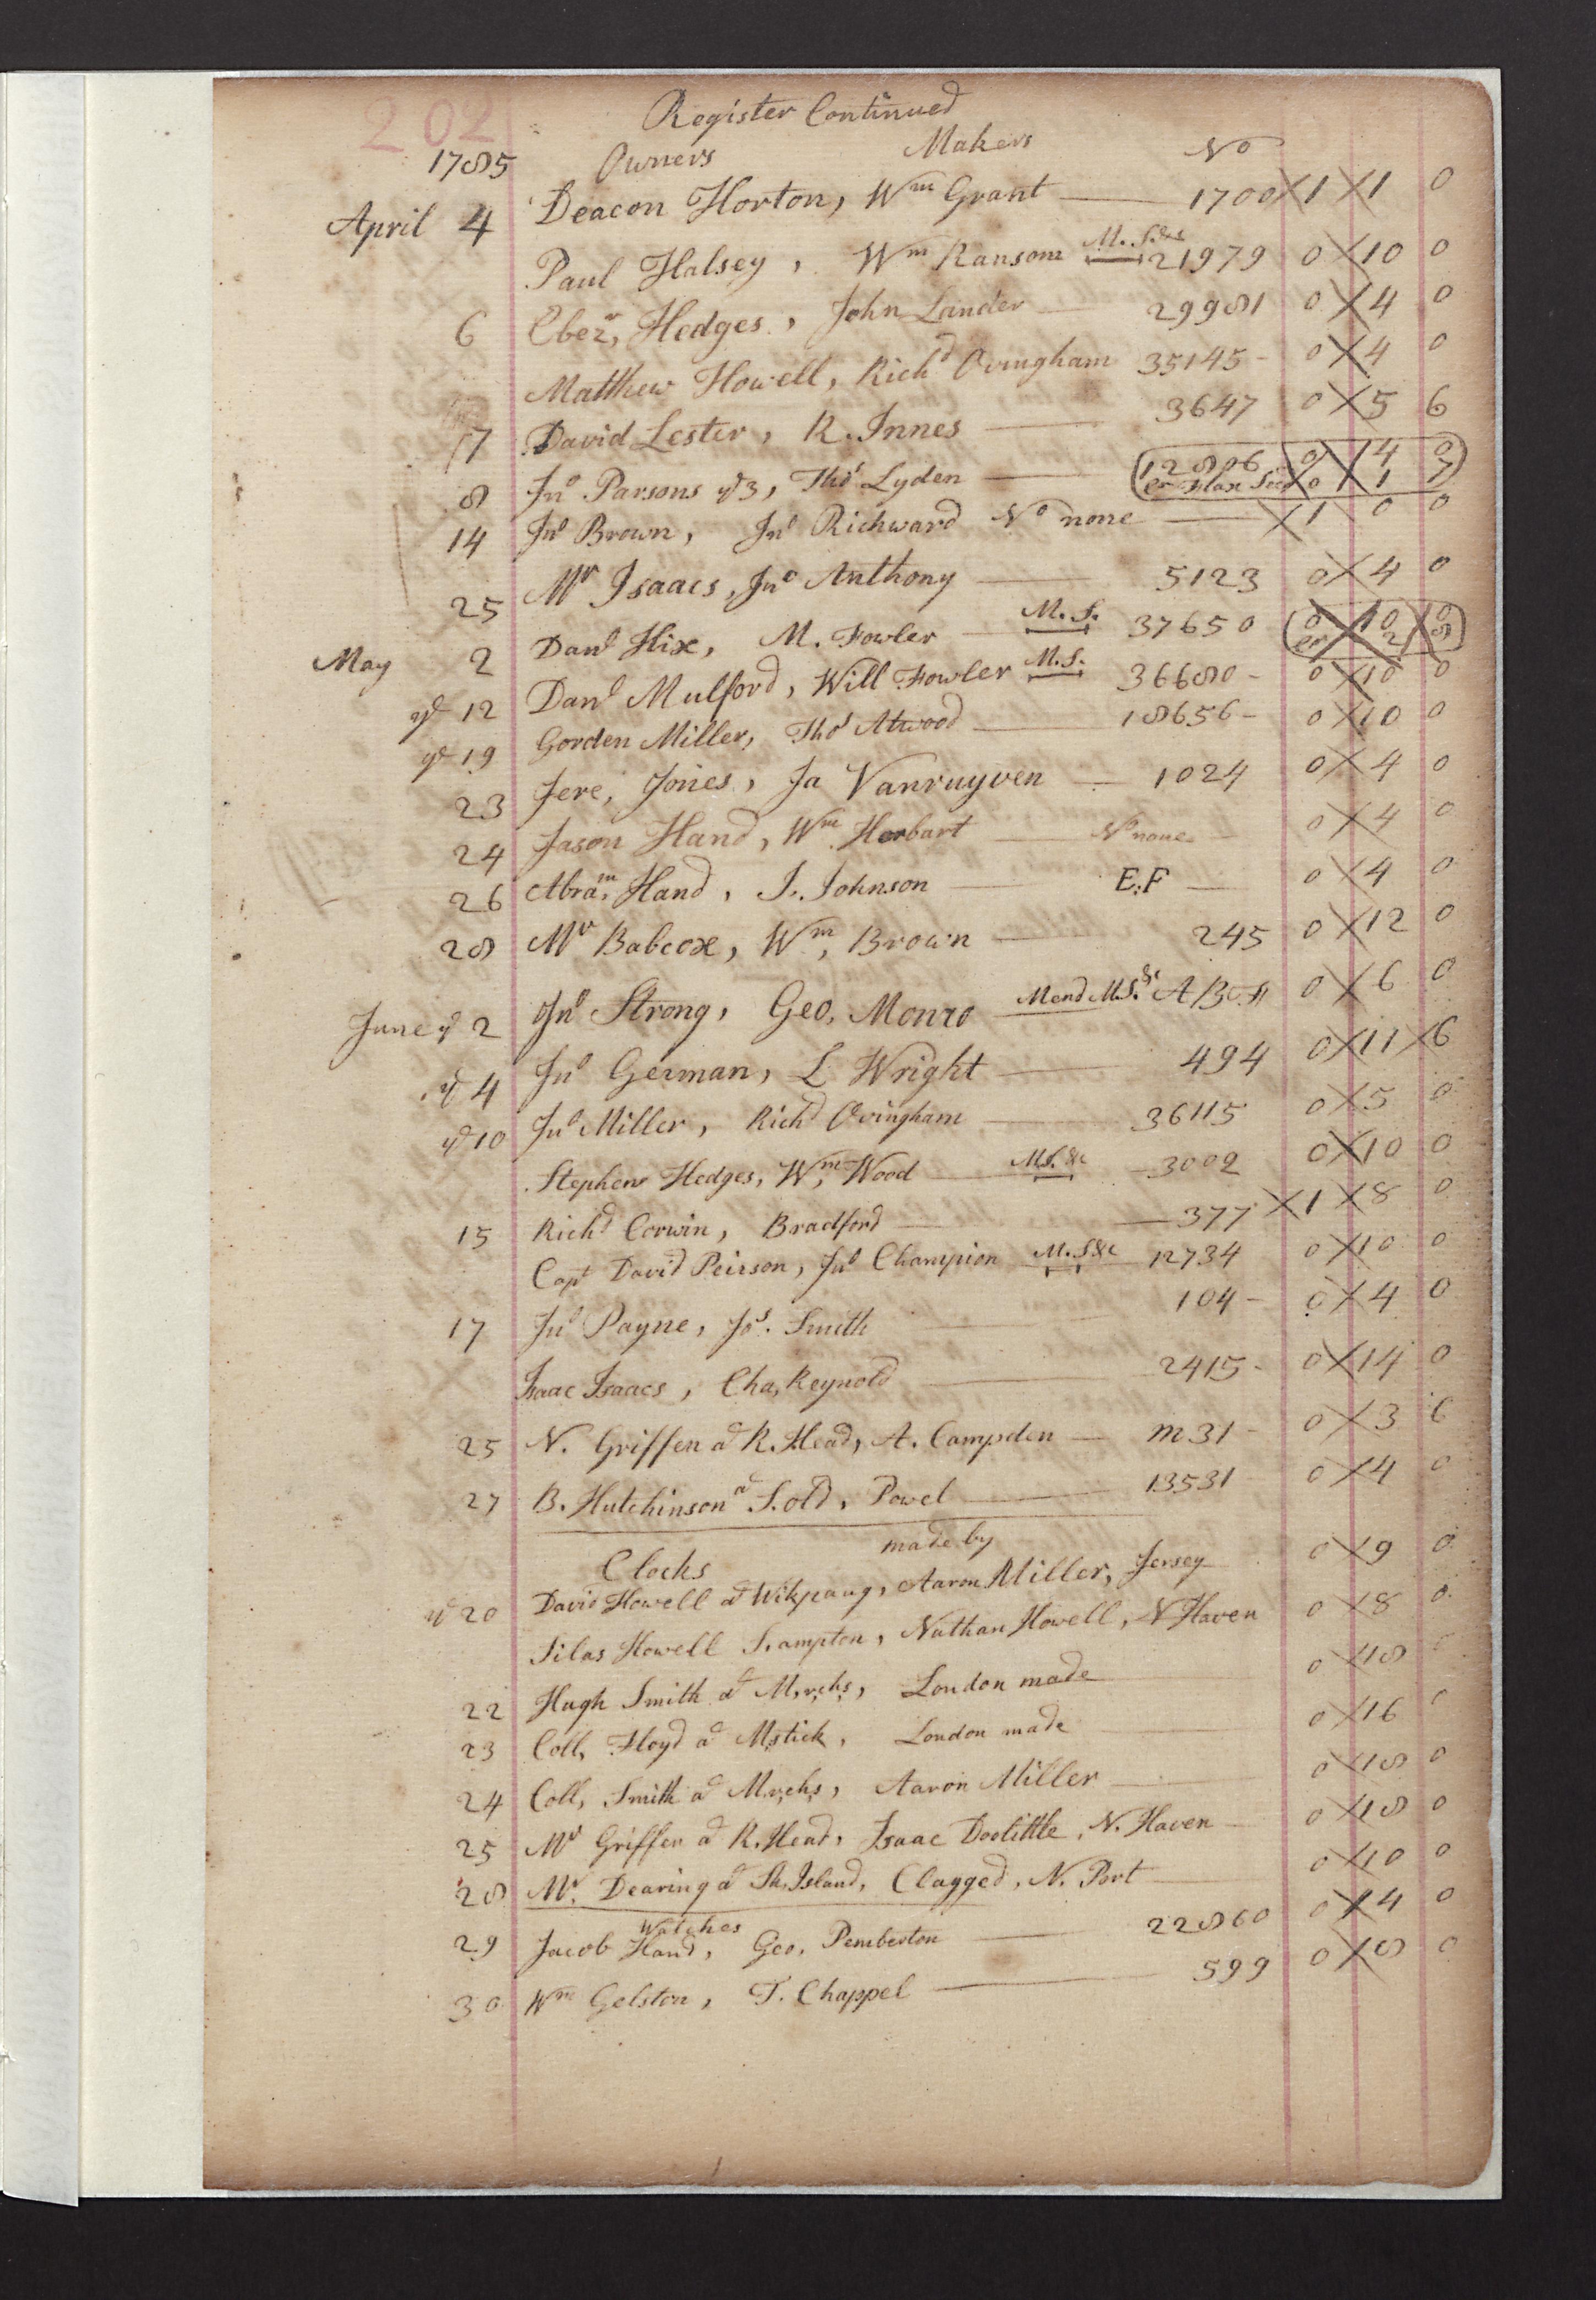 202
Register Continued
1785 Owners Makers No
April 4 Deacon Horton, Wm Grant 1700 1 1 0
Paul Halsey, Wm Ransom M.S.&c 21979 0 10 0
6 Ebezr, Hedges, John Lander 29981 0 4 0
Matthew Howell, Richd Ovingham 35145 - 0 4 0
7 David Lester, R. Innes 3647 0 5 6
8 Jno Parsons ye 3, Thos Lyden 12806 0 4 0
er Flax Seed 0 1 7
14 Jno Brown, Jno Richward No none 1 0 0
25 Mr Isaacs, Jno Anthony 5123 0 4 0
May 2 Danl Hix, M. Fowler M.S. 37650 0 10 0
er 2 8
ye 12 Danl Mulford, Will Fowler M.S. 36680 - 0 10 0
ye 19 Gorden Miller, Thos Atwood 18656 - 0 10 0
23 Jere, Jones, Ja Vanruyven 1024 0 4 0
24 Jason Hand, Wm Herbart No none 0 4 0
26 Abram, Hand, J. Johnson E:F 0 4 0
28 Mr Babcox, Wm, Brown 245 0 12 0
June ye 2 Jno Strong, Geo, Monro Mend M.S. &c 0 6 0
ye 4 Jno German, L Wright 494 0 11 6
ye 10 Jno Miller, Richd Ovingham 36115 0 5 0
Stephen Hedges, Wm, Wood M.S. &c 3002 0 10 0
15 Richd Corwin, Bradford 377 1 8 0
Capt David Peirson, Jno Champion M.S&c 12734 0 10 0
17 Jno Payne, Jos. Smith 104 - 0 4 0
Isaac Isaacs, Cha, Reynold 2415 - 0 14 0
25 N. Griffen at R. Head, A. Campden m31 - 0 3 6
27 B. Hutchinson at S.old, Powel 13531 0 4 0
Clocks made by
ye 20 David Howell at Wikpaug, Aaron Miller, Jersey 0 9 0
Silas Howell S.ampton, Nathan Howell, N Haven 0 8 0
22 Hugh Smith at M,rchs, London made 0 18 0
23 Coll, Floyd at Mstick, London made 0 16 0
24 Coll, Smith at M,rchs, Aaron Miller 0 18 0
25 Mr Griffen at R. Head, Isaac Doolittle, N. Haven 0 18 0
28 Mr. Dearing at Sh, Island, Clagged, N. Port 0 10 0
Watches
29 Jacob Hand, Geo, Pemberton 22860 0 4 0
30 Wm Gelston, T. Chappel 599 0 8 0